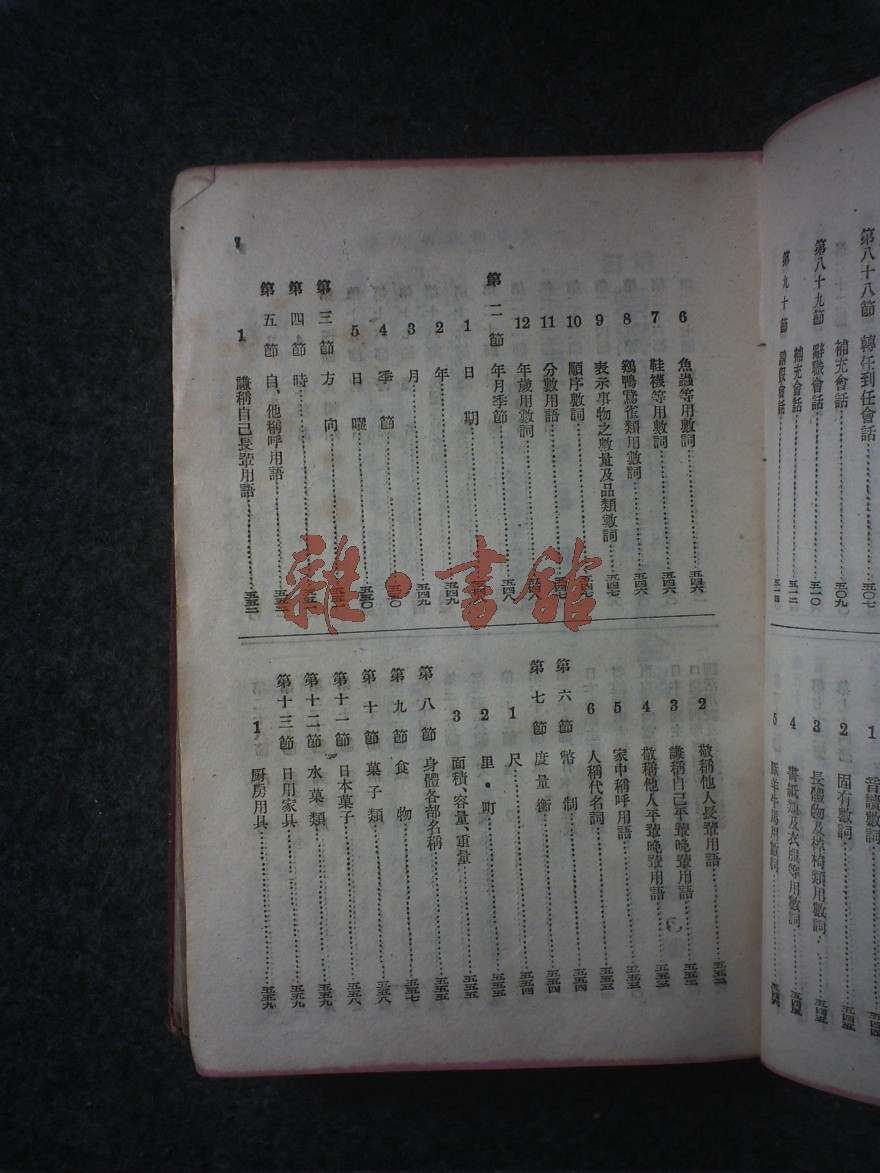 第八十八節 轉任到任會話……五〇七
補充會話……五〇九
第八十九節 辭職會話……五一〇
補充會話……五一二
第九十節 請假會話……五一四
1 音讀數詞
2 固有數詞……五四五
3 長體物及椅類用數詞……五四五
4 書紙類及衣服等用數詞……五四五
5 用數詞……五四六
7
6 魚蟲等用數詞……五四六
7 鞋襪等用數詞……五四六
8 鷄鴨鴛雀類用數詞……五四六
9 表示事物之數量及品類數詞……五四七
10 順序數詞……五四七
11 分數用語……五四七
12 年歲用數詞……五四八
第二節 年月季節……五四八
1 日期……五四八
2 年……五四九
3 月……五四九
4 季節……五五〇
5 日曜……五五〇
第三節 方向……五五一
第四節 時……五五一
第五節 自、他稱呼用語……五五二
1 謙稱自己長輩用語……五五二
2 敬稱他人長輩用語……五五二
3 謙稱自己平輩晚輩用語……五五二
4 敬稱他人平輩晚輩用語……五五三
5 家中稱呼用語……五五三
6 人稱代名詞……五五三
第六節 幣制……五五四
第七節 度量衡……五五四
1 尺……五五四
2 里・町……五五五
3 面積、容量、重量……五五五
第八節 身體各部名稱……五五五
第九節 食物……五五七
第十節 菓子類……五五八
第十一節 日本菓子……五五八
第十二節 水菓類……五五九
第十三節 日用家具……五五九
1 厨房用具……五五九
雜・書館